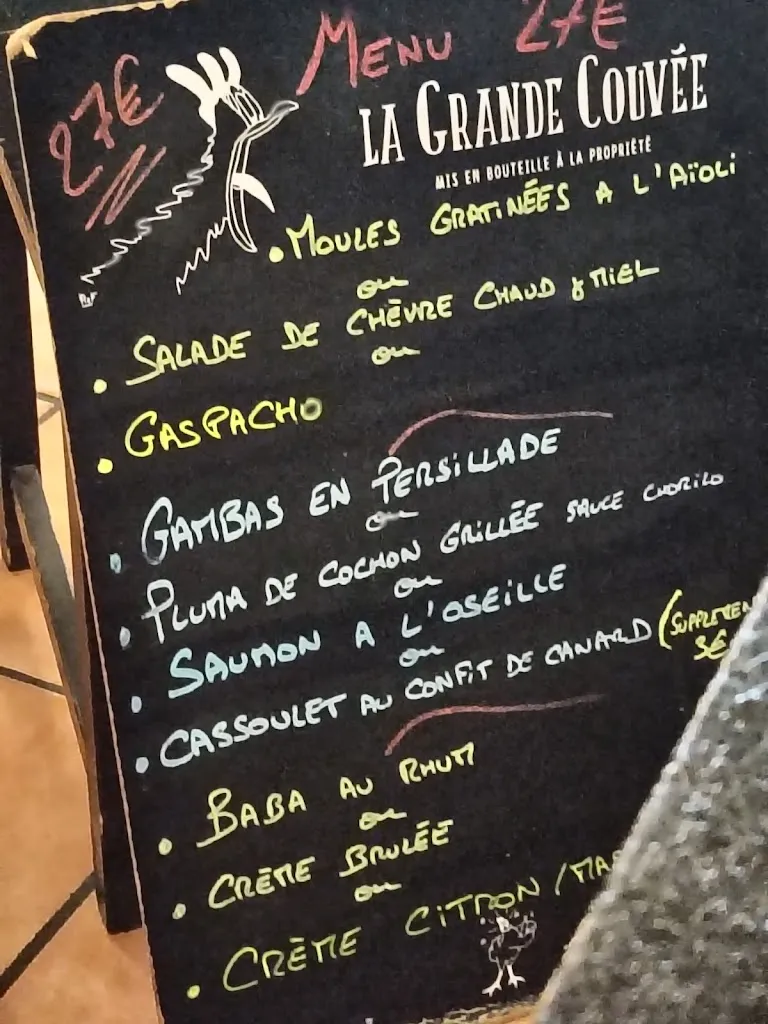 MENU 27€
27€
LA GRANDE COUVÉE
MIS EN BOUTEILLE À LA PROPRIÉTÉ
• MOULES GRATINÉES A L'AÏOLI
ou
• SALADE DE CHÈVRE CHAUD & MIEL
ou
• GASPACHO
• GAMBAS EN PERSILLADE
ou
• PLUMA DE COCHON GRILLÉE SAUCE CHORIZO
ou
• SAUMON A L'OSEILLE
ou
• CASSOULET AU CONFIT DE CANARD (SUPPLEMEN
5€
• BABA AU RHUM
ou
• CRÈME BRULÉE
ou
• CRÈME CITRON /